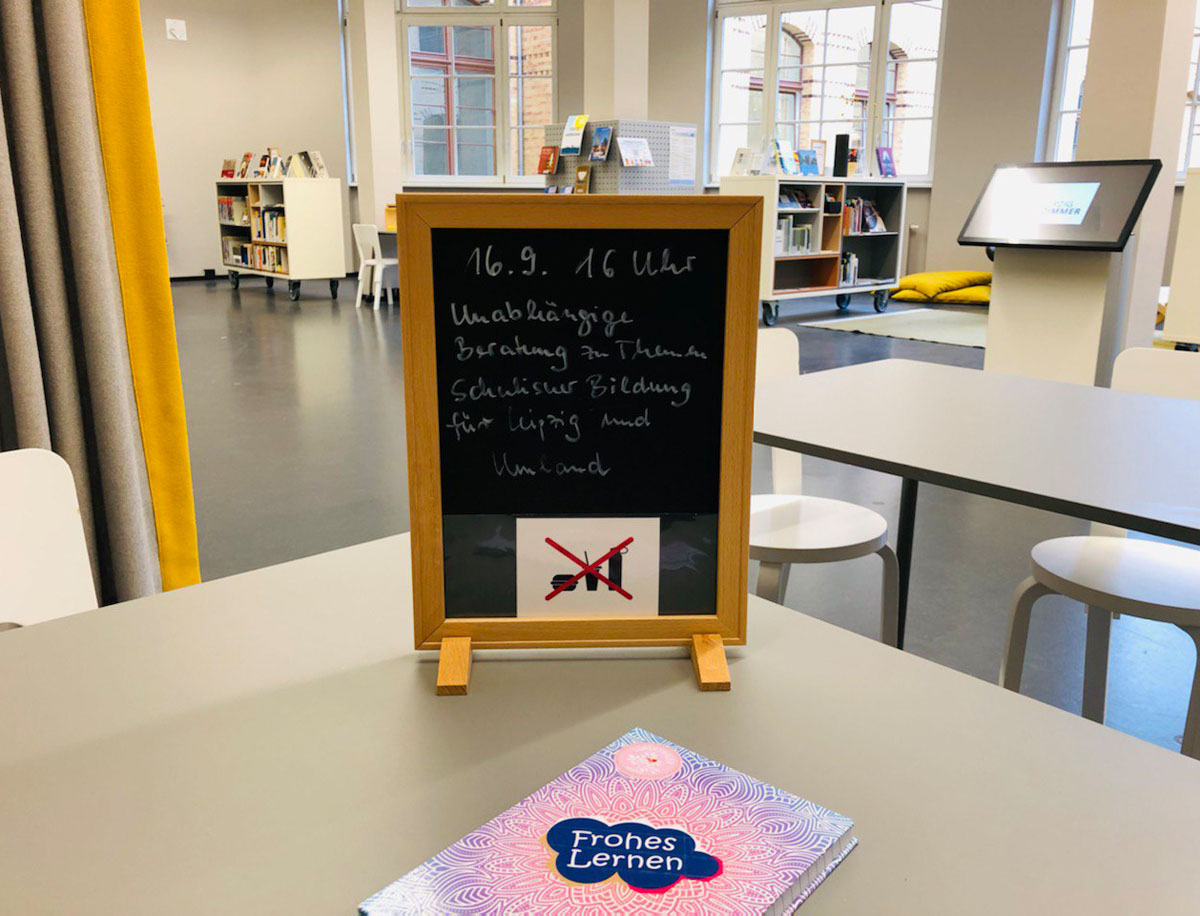 16.9. 16 Uhr
Unabhängige
Beratung zu Themen
Schulischer Bildung
für Leipzig und
Umland
ZIMMER
Frohes
Lernen